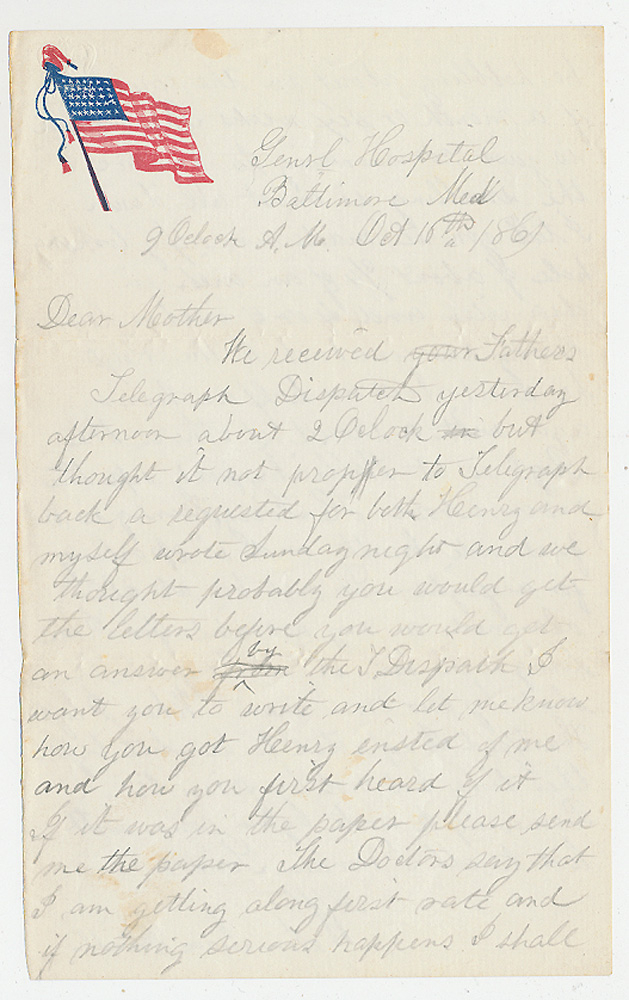 Genrl Hospital
Baltimore Med
9 Oclock A.M. Oct 16th 1861
Dear Mother
We received your Fathers
Telegraph Dispatch yesterday
afternoon about 2 Oclock in but
thought it not propper to Telegraph
back a requested for both Henry and
myself wrote Sunday night and we
thought probably you would get
the letters before you would get
an answer from by the T. Dispath I
want you to write and let me know
how you got Henry ensted of me
and how you first heard of it
If it was in the paper please send
me the paper The Doctors say that
I am getting along first rate and
if nothing serious happens I shall